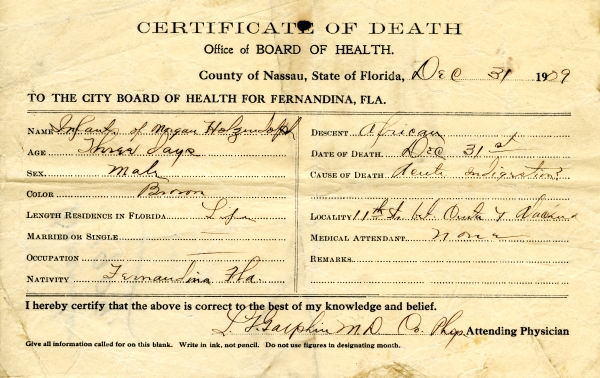 CERTIFICATE OF DEATH
Office of BOARD OF HEALTH.
County of Nassau, State of Florida, Dec 31 1909
TO THE CITY BOARD OF HEALTH FOR FERNANDINA, FLA.
NAME Infants of Morgan
AGE Three Days
SEX. Male
COLOR Brown
LENGTH RESIDENCE IN FLORIDA Life
MARRIED OR SINGLE —
OCCUPATION —
NATIVITY Fernandina Fla.
DESCENT African
DATE OF DEATH Dec 31st
CAUSE OF DEATH Acute indigestion
LOCALITY 11th St.
MEDICAL ATTENDANT none
REMARKS
I hereby certify that the above is correct to the best of my knowledge and belief.
M D Co. Phys. Attending Physician
Give all information called for on this blank. Write in ink, not pencil. Do not use figures in designating month.